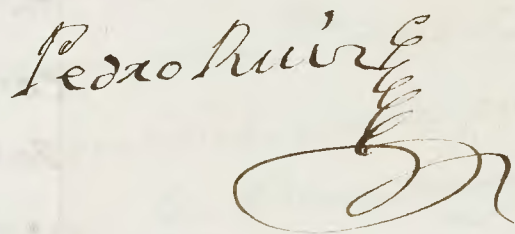 Pedro Ruiz